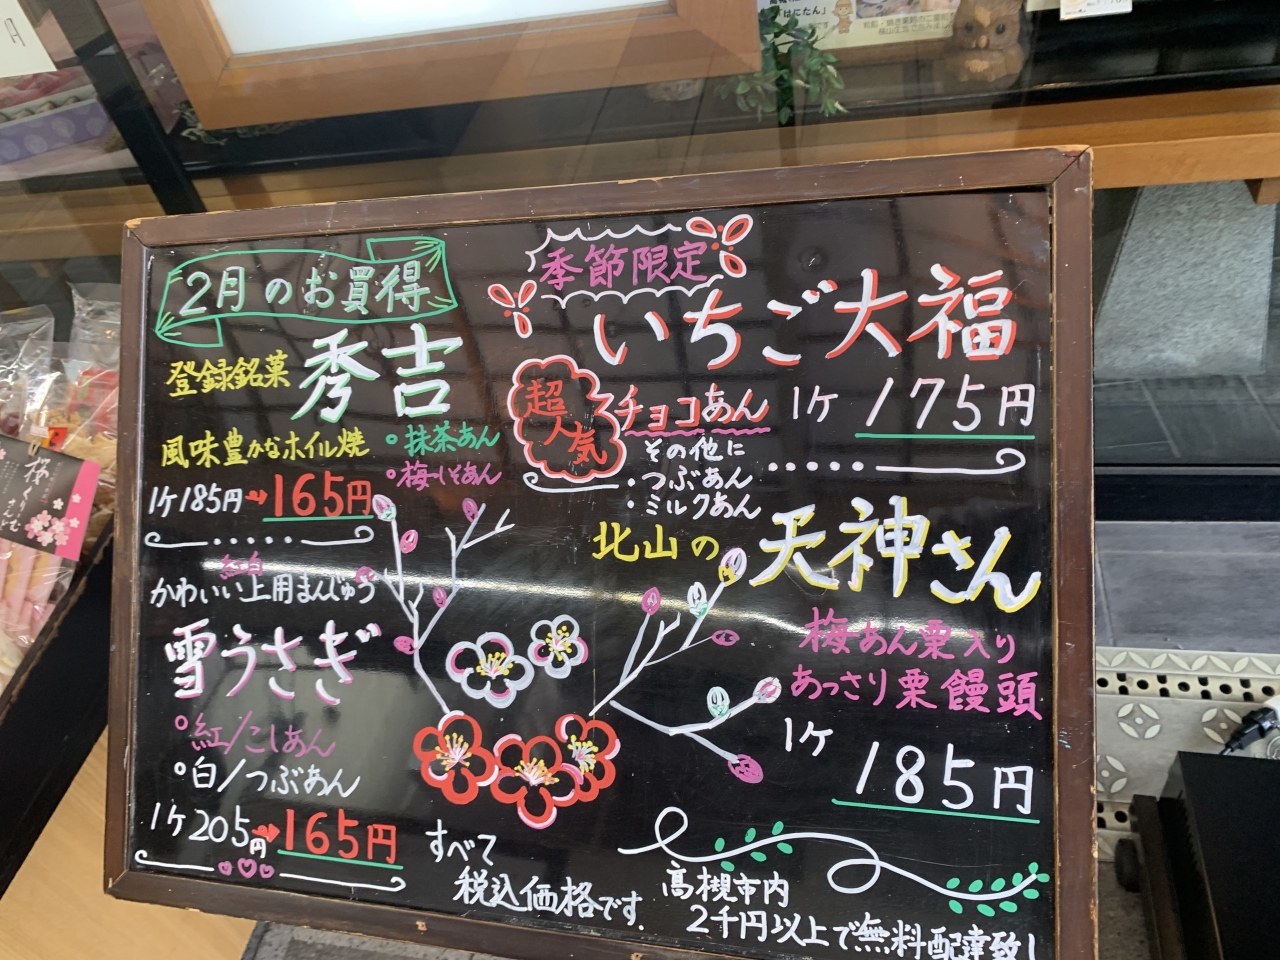 「はにたん」
2月のお買得
登録銘菓 秀吉
風味豊かなホイル焼
・抹茶あん
・梅しそあん
1ケ185円→165円
紅白
かわいい上用まんじゅう
雪うさぎ
・紅/こしあん
・白/つぶあん
1ケ205円→165円
すべて
税込価格です.
季節限定
いちご大福
超人気
チョコあん 1ケ 175円
その他に
・つぶあん
・ミルクあん
北山の 天神さん
梅あん栗入り
あっさり栗饅頭
1ケ
185円
高槻市内
2千円以上で無料配達致し
桜くりむ